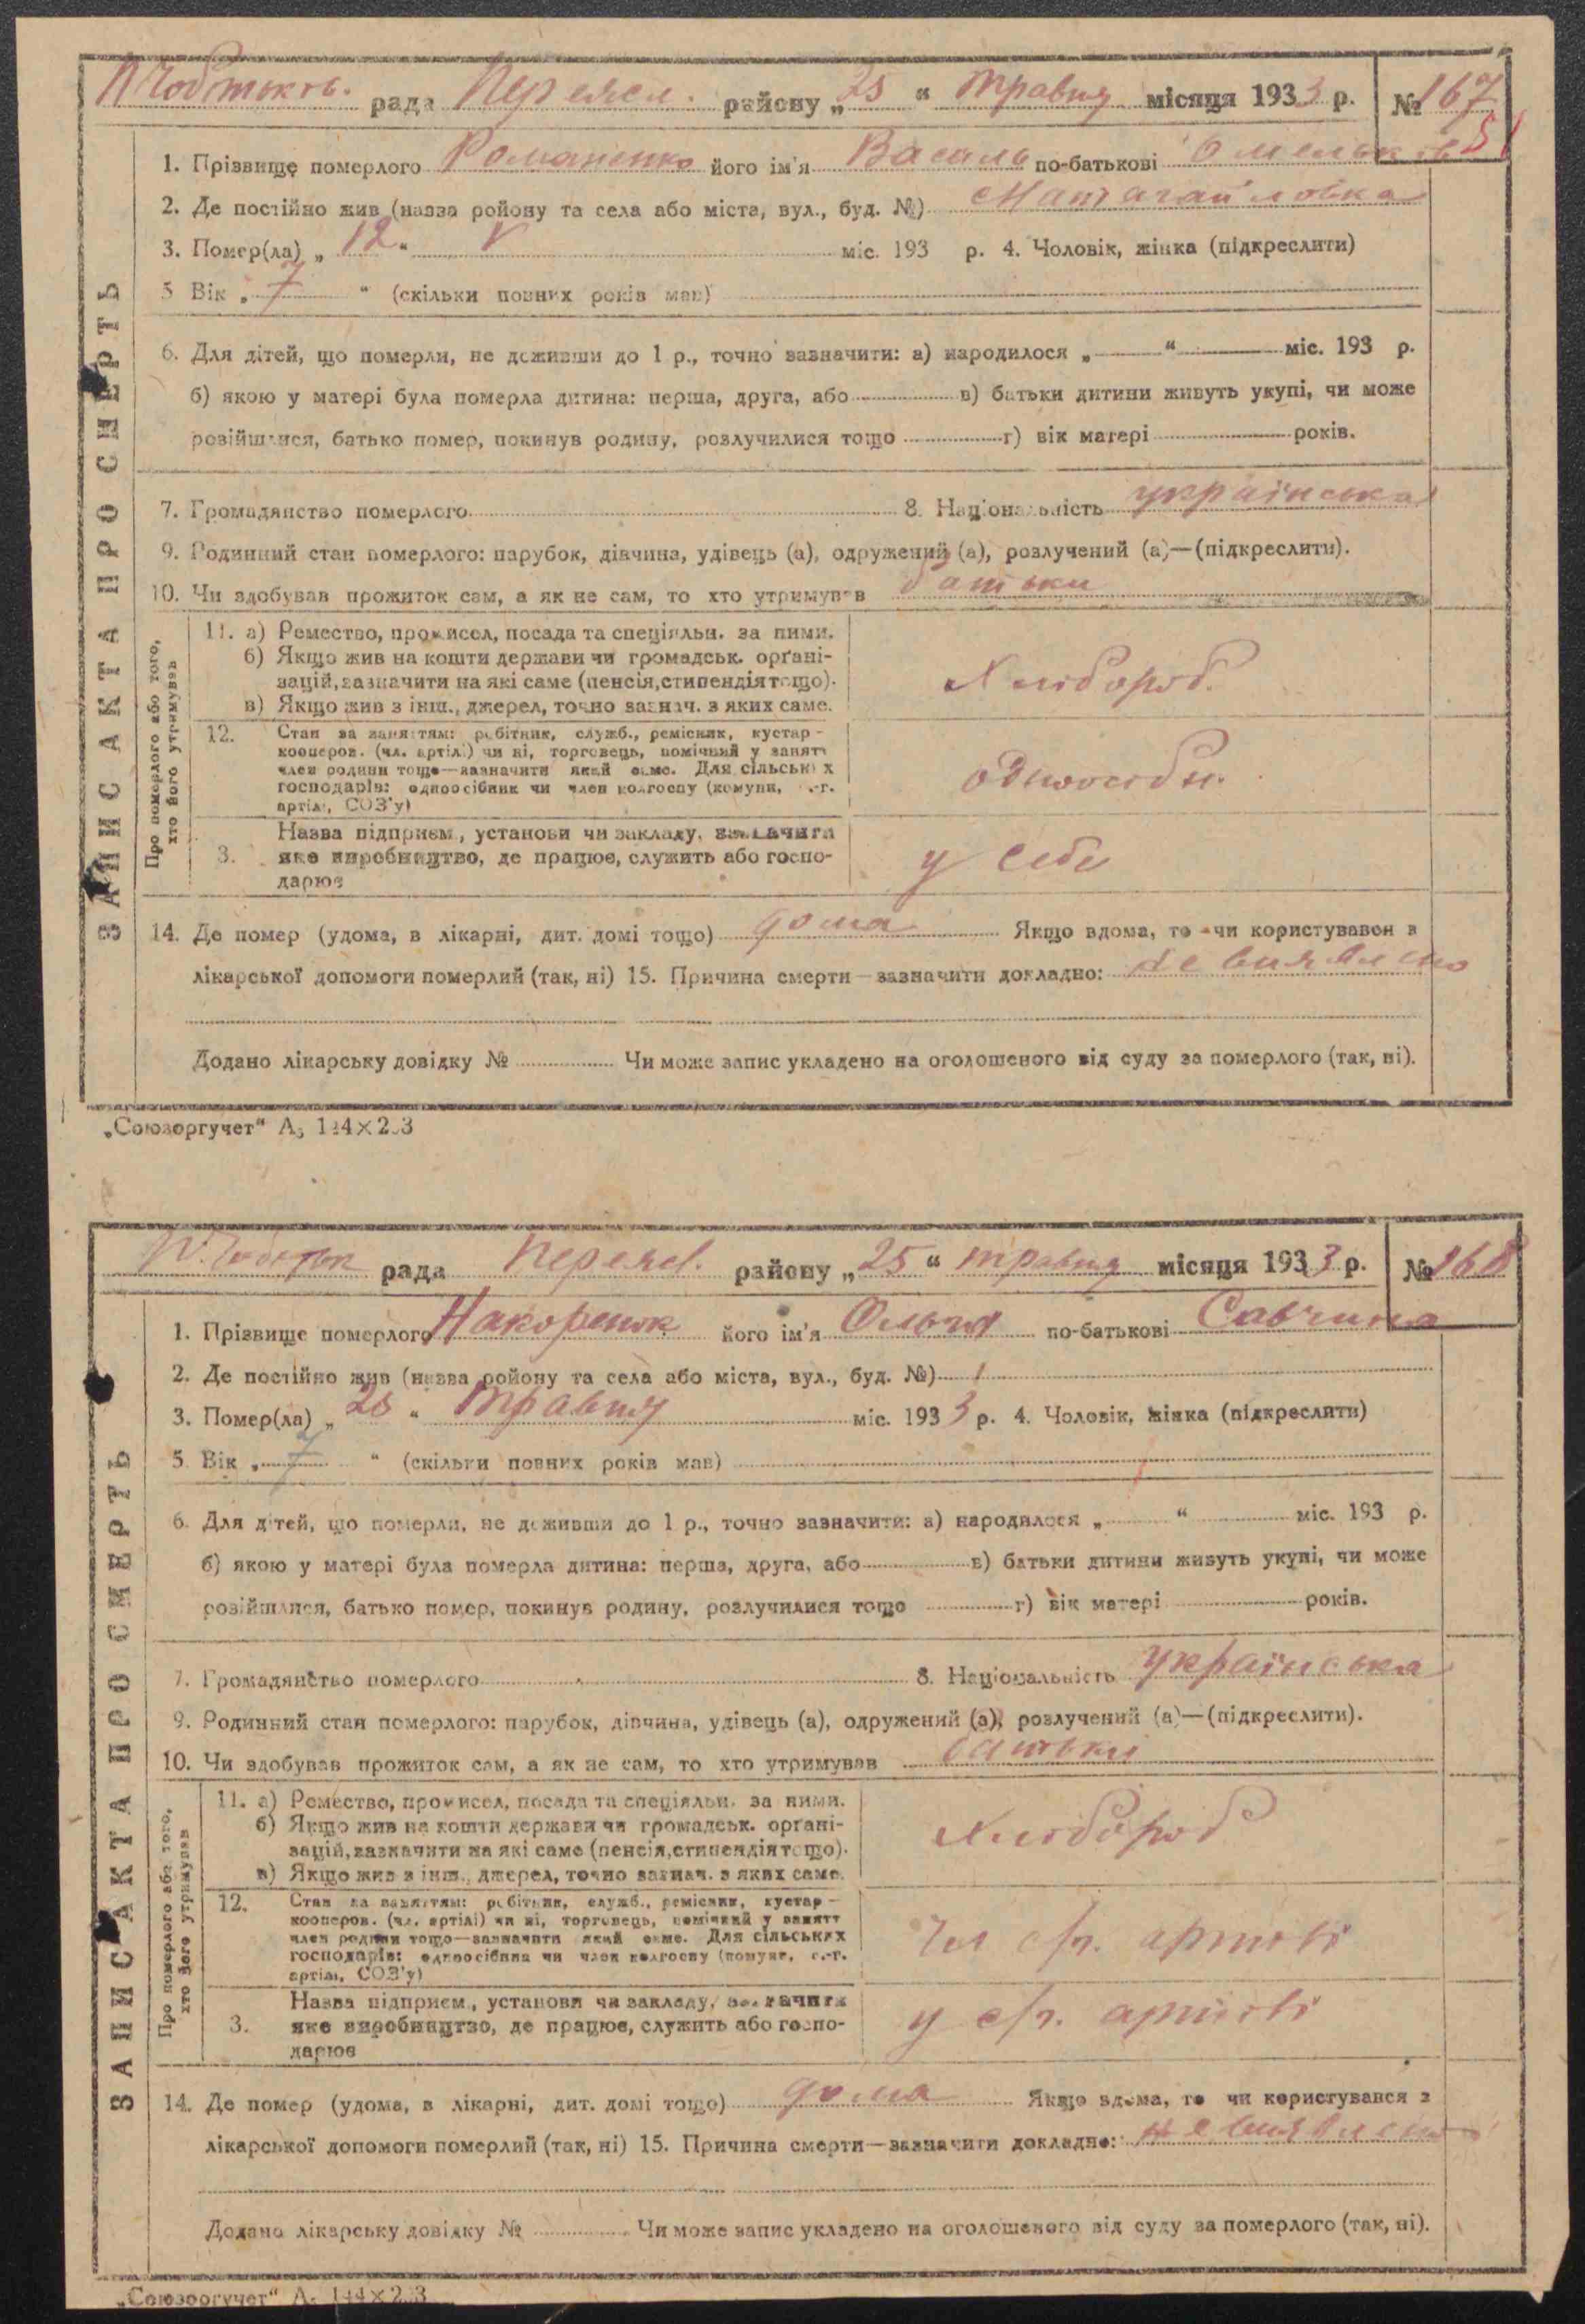 рада Переясл. району „25“ травня місяця 1933 р. № 167
51
1. Прізвище померлого Романенко його ім'я Василь по-батькові Омельков
2. Де постійно жив (назва ройону та села або міста, вул., буд. №)
3. Помер(ла) „12“ V міс. 193 р. 4. Чоловік, жінка (підкреслити)
5 Вік „7“ (скільки повних років мав)
6. Для дітей, що померли, не доживши до 1 р., точно зазначити: а) народилося „ “ міс. 193 р.
б) якою у матері була померла дитина: перша, друга, або в) батьки дитини живуть укупі, чи може
розійшлися, батько помер, покинув родину, розлучилися тощо г) вік матері років.
7. Громадянство померлого 8. Національність українська
9. Родинний стан померлого: парубок, дівчина, удівець (а), одружений (а), розлучений (а)—(підкреслити).
10. Чи здобував прожиток сам, а як не сам, то хто утримував батьки
11. а) Ремество, промисел, посада та спеціяльн. за ними.
б) Якщо жив на кошти держави чи громадськ. орґані-
зацій, зазначити на які саме (пенсія, стипендія тощо).
в) Якщо жив з інш., джерел, точно зазнач. з яких саме.
Хлібороб.
12. Стан за заняттям: робітник, служб., ремісник, кустар-
кооперов. (чл. артілі) чи ні, торговець, помічний у занятт
член родини тоще—зазначити який саме. Для сільських
господарів: одноосібник чи член колгоспу (комуни, с.-г.
артілі, СОЗ'у)
одноосібн.
3. Назва підприєм., установи чи закладу, зазначити
яке виробництво, де працює, служить або госпо-
дарює
у себе
14. Де помер (удома, в лікарні, дит. домі тощо) дома Якщо вдома, то чи користувався з
лікарської допомоги померлий (так, ні) 15. Причина смерти—зазначити докладно: не виявлено
Додано лікарську довідку № Чи може запис укладено на оголошеного від суду за померлого (так, ні).
ЗАПИС АКТА ПРО СМЕРТЬ
Про померлого або того,
хто його утримував
„Союзоргучет“
рада Переясл. району „25“ травня місяця 1933 р. № 168
1. Прізвище померлого Накоренок його ім'я Ольга по-батькові Савчина
2. Де постійно жив (назва ройону та села або міста, вул., буд. №)
3. Помер(ла) „25“ травня міс. 1933 р. 4. Чоловік, жінка (підкреслити)
5 Вік „7“ (скільки повних років мав)
6. Для дітей, що померли, не доживши до 1 р., точно зазначити: а) народилося „ “ міс. 193 р.
б) якою у матері була померла дитина: перша, друга, або в) батьки дитини живуть укупі, чи може
розійшлися, батько помер, покинув родину, розлучилися тощо г) вік матері років.
7. Громадянство померлого 8. Національність українська
9. Родинний стан померлого: парубок, дівчина, удівець (а), одружений (а), розлучений (а)—(підкреслити).
10. Чи здобував прожиток сам, а як не сам, то хто утримував батьки
11. а) Ремество, промисел, посада та спеціяльн. за ними.
б) Якщо жив на кошти держави чи громадськ. орґані-
зацій, зазначити на які саме (пенсія, стипендія тощо).
в) Якщо жив з інш., джерел, точно зазнач. з яких саме.
Хлібороб
12. Стан за заняттям: робітник, служб., ремісник, кустар-
кооперов. (чл. артілі) чи ні, торговець, помічний у занятт
член родини тощо—зазначити який саме. Для сільських
господарів: одноосібник чи член колгоспу (комуни, с.-г.
артілі, СОЗ'у)
Чл с/г. артілі
3. Назва підприєм., установи чи закладу, зазначити
яке виробництво, де працює, служить або госпо-
дарює
у с/г. артілі
14. Де помер (удома, в лікарні, дит. домі тощо) дома Якщо вдома, то чи користувався з
лікарської допомоги померлий (так, ні) 15. Причина смерти—зазначити докладно: не виявлено
Додано лікарську довідку № Чи може запис укладено на оголошеного від суду за померлого (так, ні).
ЗАПИС АКТА ПРО СМЕРТЬ
Про померлого або того,
хто його утримував
„Союзоргучет“